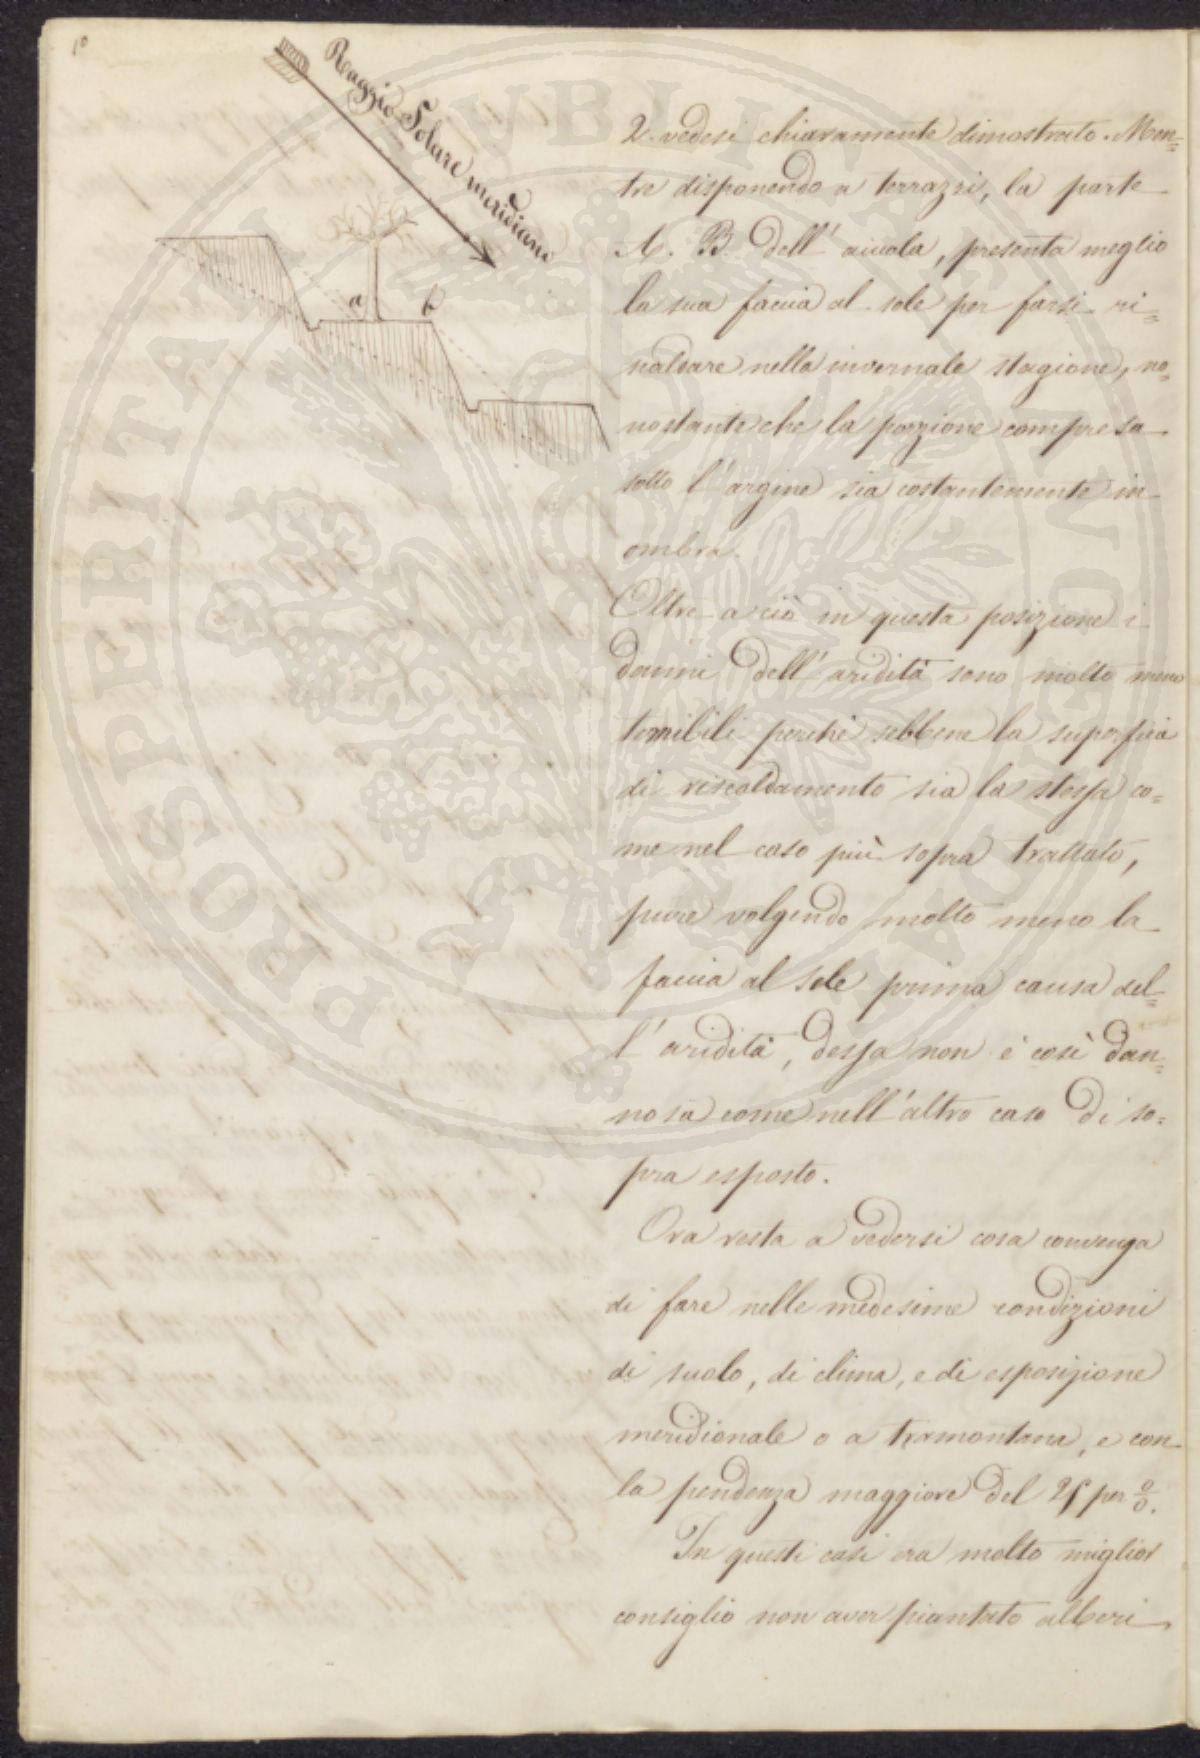 10
Raggio Solare meridiano
a b
2. vedesi chiaramente dimostrato. Men=
tre disponendo a terrazzi, la parte
A. B. dell' aiuola, presenta meglio
la sua faccia al sole per farsi ri=
scaldare nella invernale stagione, no=
nostante che la porzione compresa
sotto l' argine sia costantemente in
ombra.
Oltre a ciò in questa posizione i
danni dell' aridità sono molto meno
temibili perchè sebbene la superficie
di riscaldamento sia la stessa co=
me nel caso più sopra trattato,
pure volgendo molto meno la
faccia al sole prima causa del=
l' aridità, dessa non è così dan=
nosa come nell' altro caso di so=
pra esposto.
Ora resta a vedersi cosa convenga
di fare nelle medesime condizioni
di suolo, di clima, e di esposizione
meridionale o a tramontana, e con
la pendenza maggiore del 25 per %.
In questi casi era molto miglior
consiglio non aver piantato alberi
PROSPERITATI PUBLICAE AUGENDAE